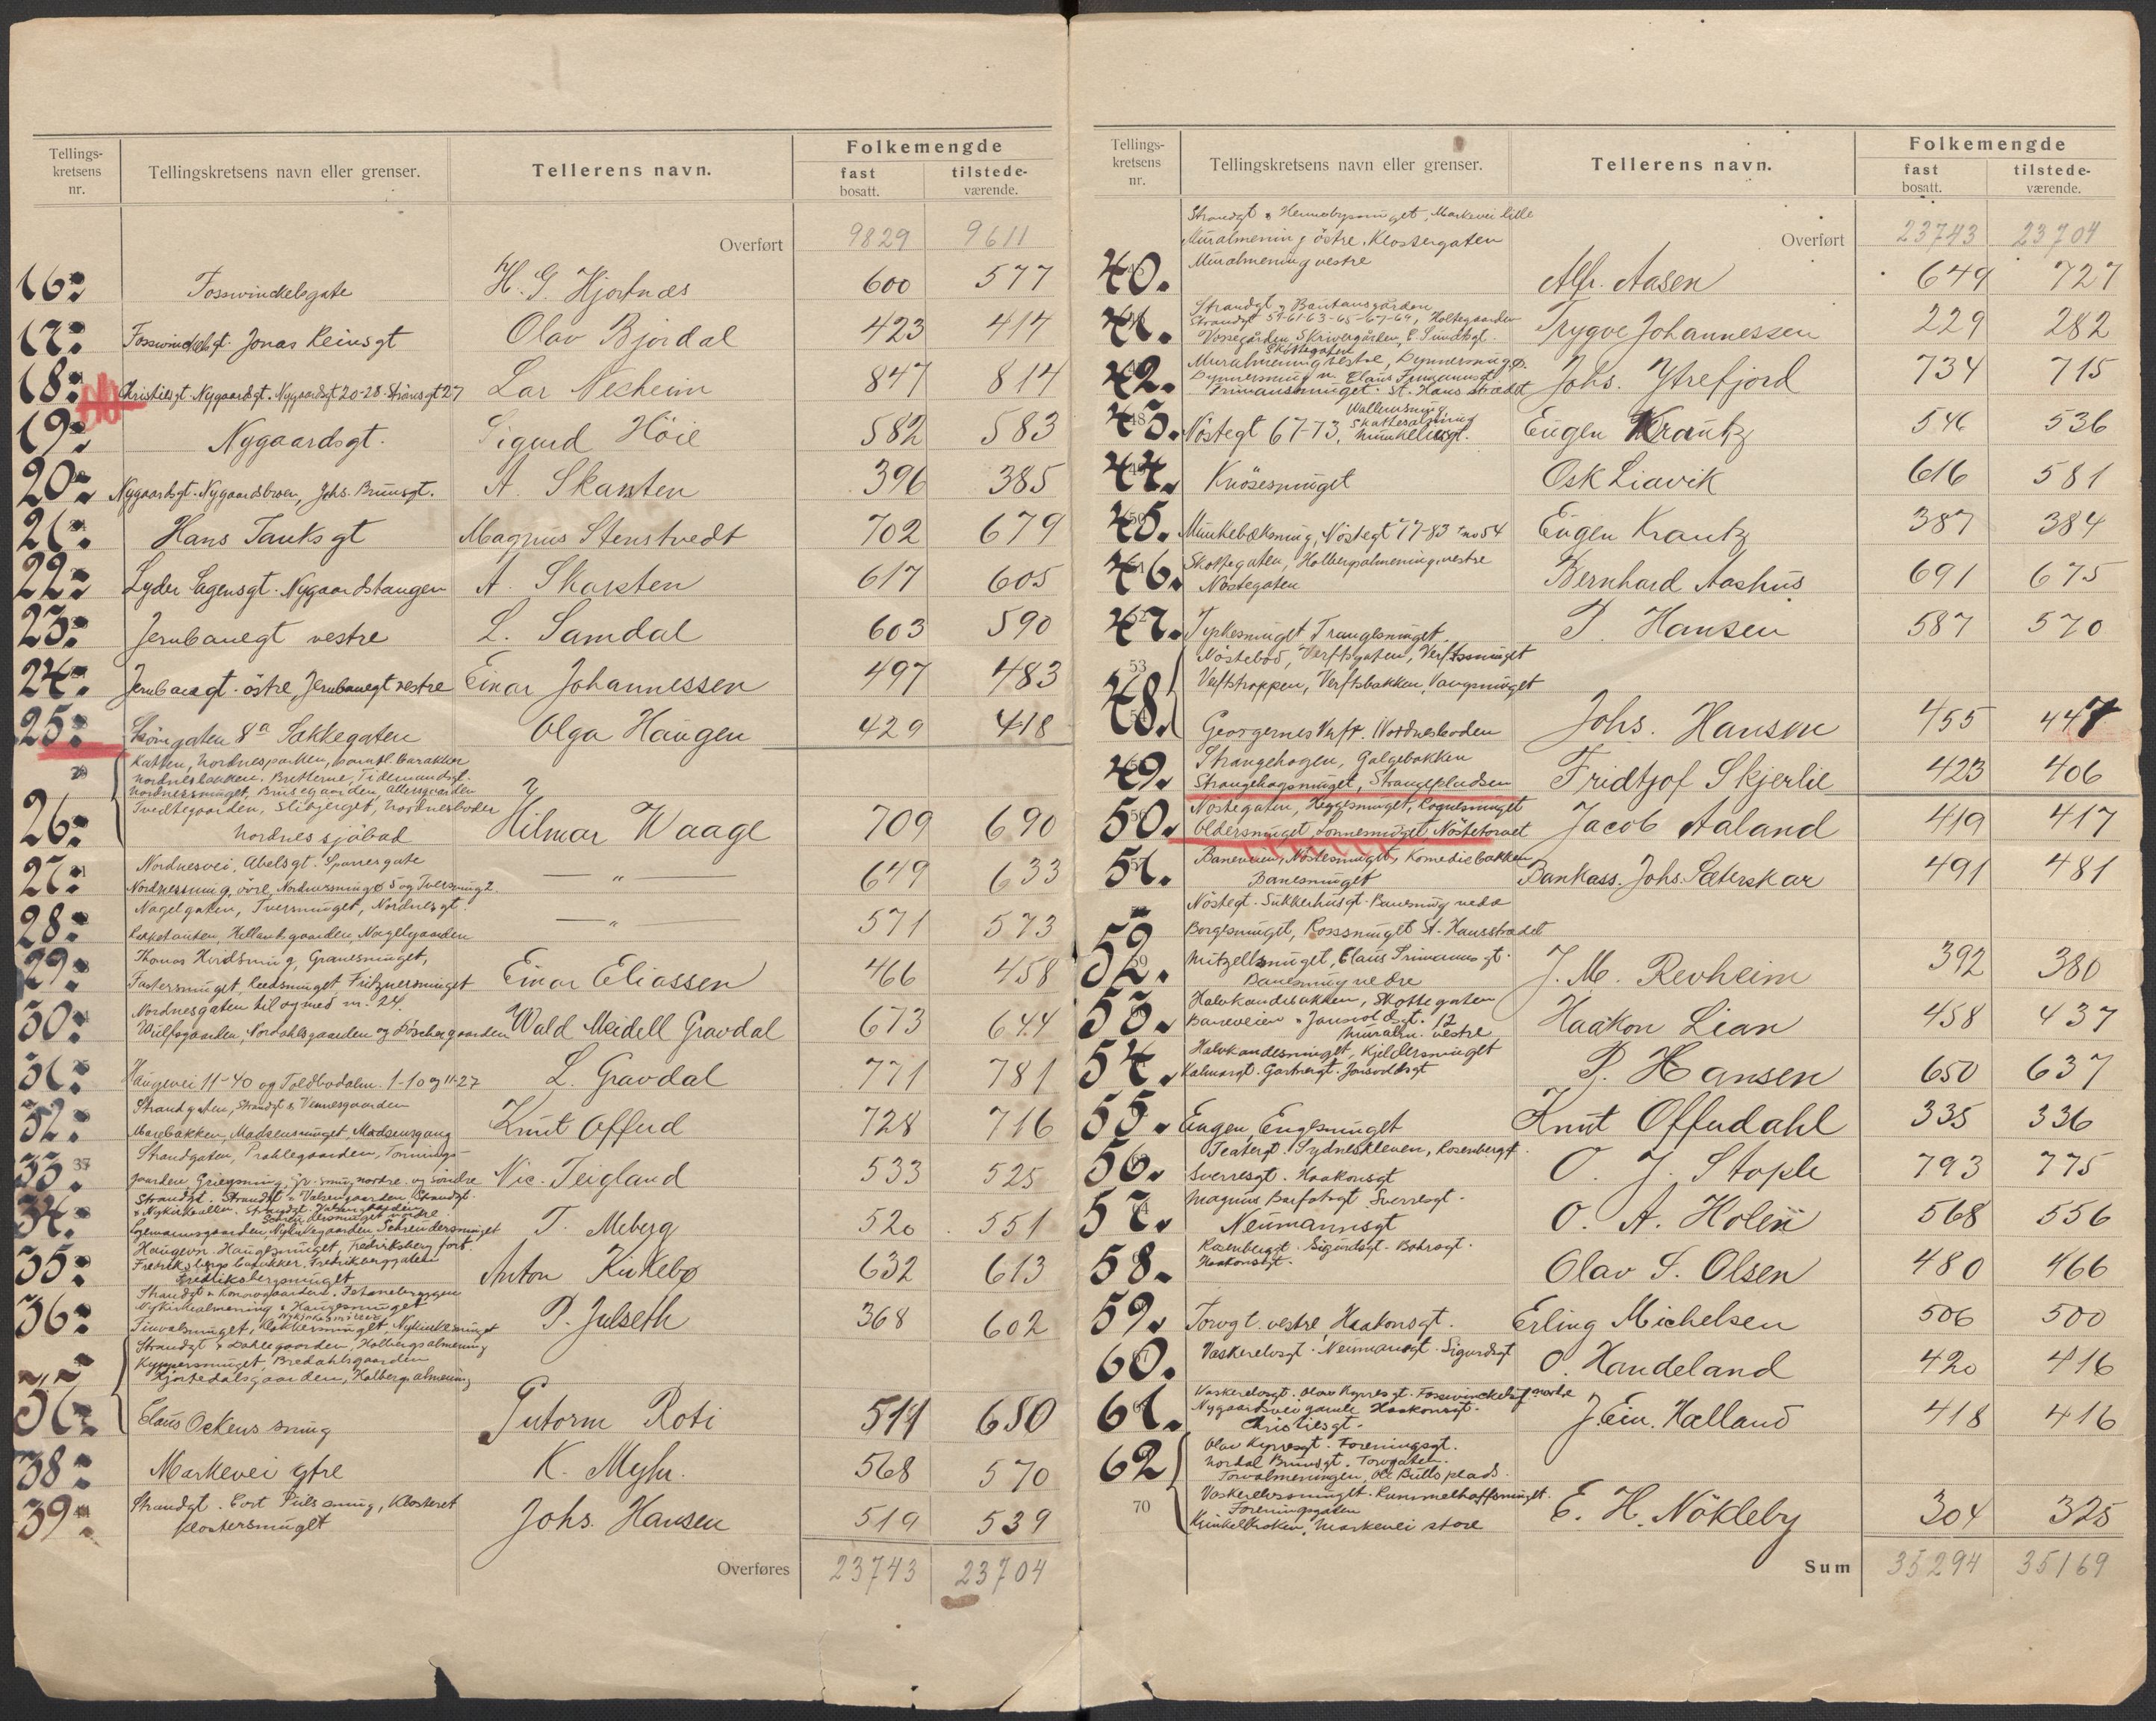 Tellings-kretsens nr. Tellingskretsens navn eller grenser. Tellerens navn. Folkemengde fast bosatt. tilstede-værende.
Overført 9829 9611
16: Fosswinckelsgate H. G. Hjortnæs 600 577
17: Fosswinckelsgt. Jonas Reinsgt Olav Bjordal 423 414
18: Christiesgt. Nygaardsgt. Nygaardsgt 20-28. Strömsgt 27 Lar Necheim 847 814
19: Nygaardsgt. Sigurd Höie 582 583
20: Nygaardsgt. Nygaardsbroen, Johs. Brunsgt. A. Skarsten 396 385
21: Hans Tanks gt Magnus Stenstvedt 702 679
22: Lyder Sagensgt. Nygaardstangen A Skarsten 617 605
23: Jernbanegt vestre L. Samdal 603 590
24: Jernbanegt. östre, Jernbanegt vestre Einar Johannessen 497 483
25: 8a Sökkegaten Olga Haugen 429 418
Katten, Nordnesparken, barakker
Nordnesbakken. Bretterne, Tidemandsgt.
Nordnessmuget, Brusegaarden, Allersgaarden
Tvedtegaarden, Slibjerget, Nordnesboder
26: Nordnes sjöbad Hilmar Waage 709 690
Nordnesvei, Abelsgt. Sparresgate
27: Nordnessmug, övre, Nordnessmug 5 og Tversmug 2. — " — 649 633
Nagelgaten, Tversmuget, Nordnesgt.
28: Hellandsgaarden, Nagelgaarden — " 571 573
Thomas Hirdsmug, Granesmuget,
29: Fastersmuget, Reedsmuget Fritznersmuget Einar Eliassen 466 458
Nordnesgaten til og med nr. 24.
30: Wulfsgaarden, Nordahlsgaarden og Löschergaarden Wald Meidell Gravdal 673 644
31: Haugevei 11-40 og Toldbodalm. 1-10 og 11-27 L. Gravdal 771 781
Strandgaten, Strandgt s. Vennesgaarden
32: Marebakken, Madsensmuget, Madsensgang Knut Offerd 728 716
Strandgaten, Prahlegaarden, Tornings-
33: 37 gaarden, Griegsmug, gr. smug nordre og söndre Nic. Teigland 533 525
34: Nykirkegaarden Schreudersmuget T. Meberg 520 551
Haugevn. Haugesmuget, Fredriksberg fort.
Fredriksbergs barakker. Fredriksberggaten
35: Fredriksbergsmuget Anton Kirkebø 632 613
Nykirkealmening. Haugesmuget
36: Klokkersmuget, Nykirkesmuget P. Julseth 368 602
Strandgt. Dahlegaarden, Holbergsalmening
Kyppersmuget, Bredahlsgaarden
Hjortedalsgaarden, Holbergsalmening
Claus Ockens smug Gutorm Roti 514 650
38: Markevei ytre K. Myhr. 568 570
39: Strandgt. Cort Piilssmug, Klosteret
Klostersmuget Johs. Hansen 519 539
Overføres 23743 23704
Tellings-kretsens nr. Tellingskretsens navn eller grenser. Tellerens navn. Folkemengde fast bosatt. tilstede-værende.
Strandgt. Hennebysmuget, Markevei lille
Muralmening östre, Klostergaten
Overført 23743 23704
40. Muralmening vestre Alfr. Aasen 649 727
Strandgt. 59-61-63-65-67-69, Holtegaarden
41. Vossegården, Skrivergården, E. Sundtsgt. Trygve Johannessen 229 282
Skottegaten
Muralmening vestre, Dynnersmuget
42. St. Hans strædet Johs. Ytrefjord 734 715
43. Nöstegt 67-73, Wallemsmug, Skattesalming Munkebæksgt. Eugen Krantz 546 536
44. Knösesmuget Osk Liavik 616 581
45. 50 Munkebæksmug, Nöstegt 77-83 54 Eugen Krantz 387 384
Skottegaten, Holbergsalmening vestre
46. Nöstegaten Bernhard Aashus 691 675
47. Tyrkesmuget Tranglsmuget. P. Hansen 587 570
53 Nöstebod, Verftsgaten, Verftssmuget
Verftstrappen, Verftsbakken, Vaugsmuget
48. 54 Georgernes Verft. Nordnesboden Johs. Hansen 455 447
Strangehagen, Galgebakken
49. Strangehagsmuget, Strangepladsen Fridtjof Skjerlie 423 406
Nöstegaten, Heggesmuget, Rognesmuget
50. Oldersmuget, Lonnesmuget Nöstetorvet Jacob Aaland 419 417
Baneveien, Nöstesmuget, Komediebakken
51. Banesmuget Bankass. Johs. Sæterskar 491 481
Nöstegt. Sukkerhusgt. Banesmug nedre
Borgesmuget, Rosesmuget St. Hansstrædet
52. 59 Mitzellsmuget, Claus Frimanns gt.
Banesmug nedre J. M. Revheim 392 380
Halvkandebakken, Skottegaten
53. Baneveien. Jansvoldsgt. 12
Muralm. vestre Haakon Lian 458 437
Halvkandesmuget, Kjeldersmuget
54. Kalmargt. Gartnergt. Jonsvoldsgt P. Hansen 650 637
55. Engen, Engesmuget Knut Offerdahl 335 336
Teatergt. Sydneskleven, Rosenbergt.
56. Sverresgt. Haakonsgt O. J. Stople 793 775
Magnus Barfotsgt. Sverresgt.
57. Neumannsgt O. A. Holen 568 556
Rosenbergt. Sigurdsgt. Bohrsgt.
58. Haakonsgt. Olav S. Olsen 480 466
59. Torvgt. vestre, Haakonsgt. Erling Michelsen 506 500
60. Vaskerelvsgt. Neumansgt. Sigurdsgt O. Handeland 420 416
Vaskerelvsgt. Olav Kyrresgt. Fosswinckelsgt nordre
Nygaardsvei gamle Haakonsgt.
61. Christiesgt. J. Ein. Hælland 418 416
Olav Kyrresgt. Foreningsgt.
62 Nordal Brunsgt. Torvgaten.
Torvalmeningen, Ole Bulls plads.
Vaskerelvsmuget. Rummelhoffsmuget.
70 Foreningsgaten
Krinkelkroken. Markevei store E. H. Nökleby 304 325
Sum 35294 35169